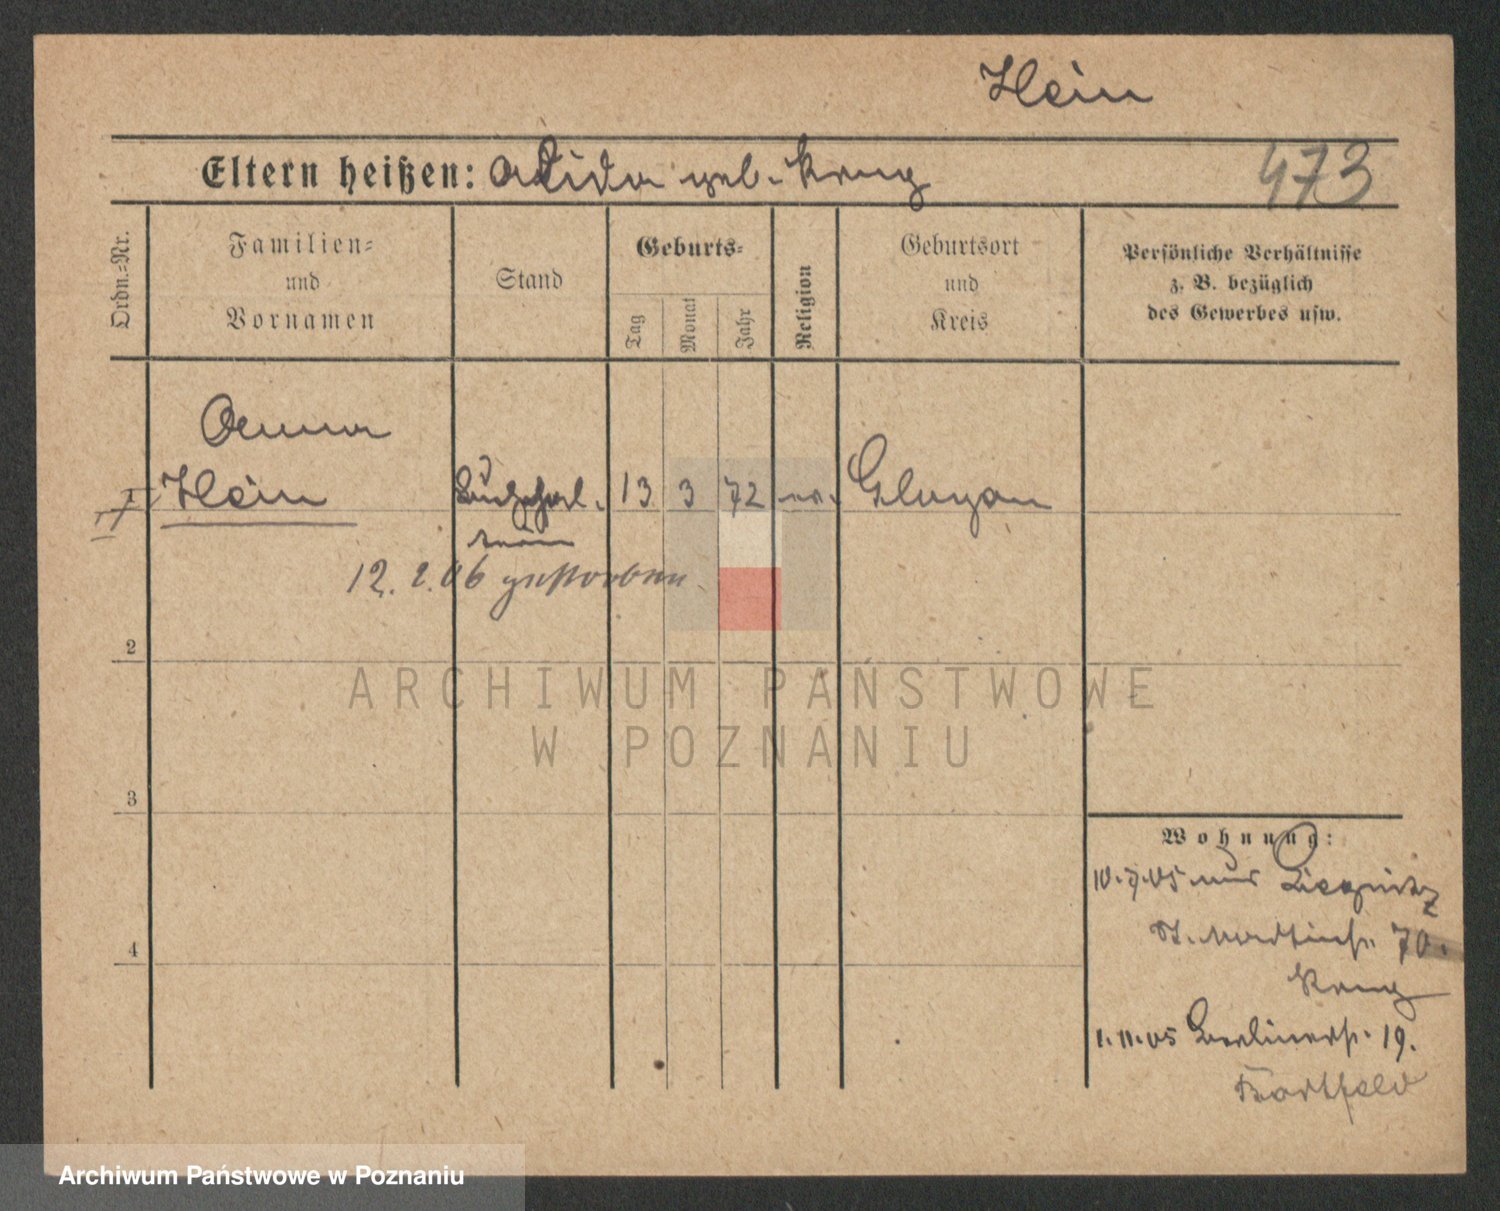 Hein
Eltern heißen: Alida geb. Krug
473
Ordn.-Nr.
Familien-
und
Vornamen
Stand
Geburts-
Tag
Monat
Jahr
Religion
Geburtsort
und
Kreis
Persönliche Verhältnisse
z. B. bezüglich
des Gewerbes usw.
Anna
1 Hein
Buchhal-
terin
13 3 72 ev. Glogau
12. 2. 06 gestorben
2
3
4
Wohnung:
10.7.05 aus Liegnitz
St. Martinstr. 70.
Krug
1.11.05 Berlinerstr. 19.
Bartfeld
ARCHIWUM PAŃSTWOWE
W POZNANIU
Archiwum Państwowe w Poznaniu